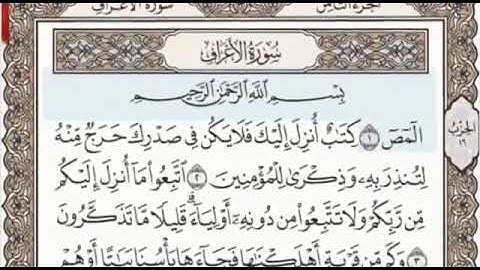 الجزء الثامن
سورة الأعراف
سُورَةُ الأَعْرَافِ
بِسْمِ ٱللَّهِ ٱلرَّحْمَٰنِ ٱلرَّحِيمِ
الٓمٓصٓ ١ كِتَٰبٌ أُنزِلَ إِلَيْكَ فَلَا يَكُن فِى صَدْرِكَ حَرَجٌ مِّنْهُ
الحزب ١٦
لِتُنذِرَ بِهِۦ وَذِكْرَىٰ لِلْمُؤْمِنِينَ ٢ ٱتَّبِعُوا۟ مَآ أُنزِلَ إِلَيْكُم
مِّن رَّبِّكُمْ وَلَا تَتَّبِعُوا۟ مِن دُونِهِۦٓ أَوْلِيَآءَ ۗ قَلِيلًا مَّا تَذَكَّرُونَ
٣ وَكَم مِّن قَرْيَةٍ أَهْلَكْنَٰهَا فَجَآءَهَا بَأْسُنَا بَيَٰتًا أَوْ هُمْ